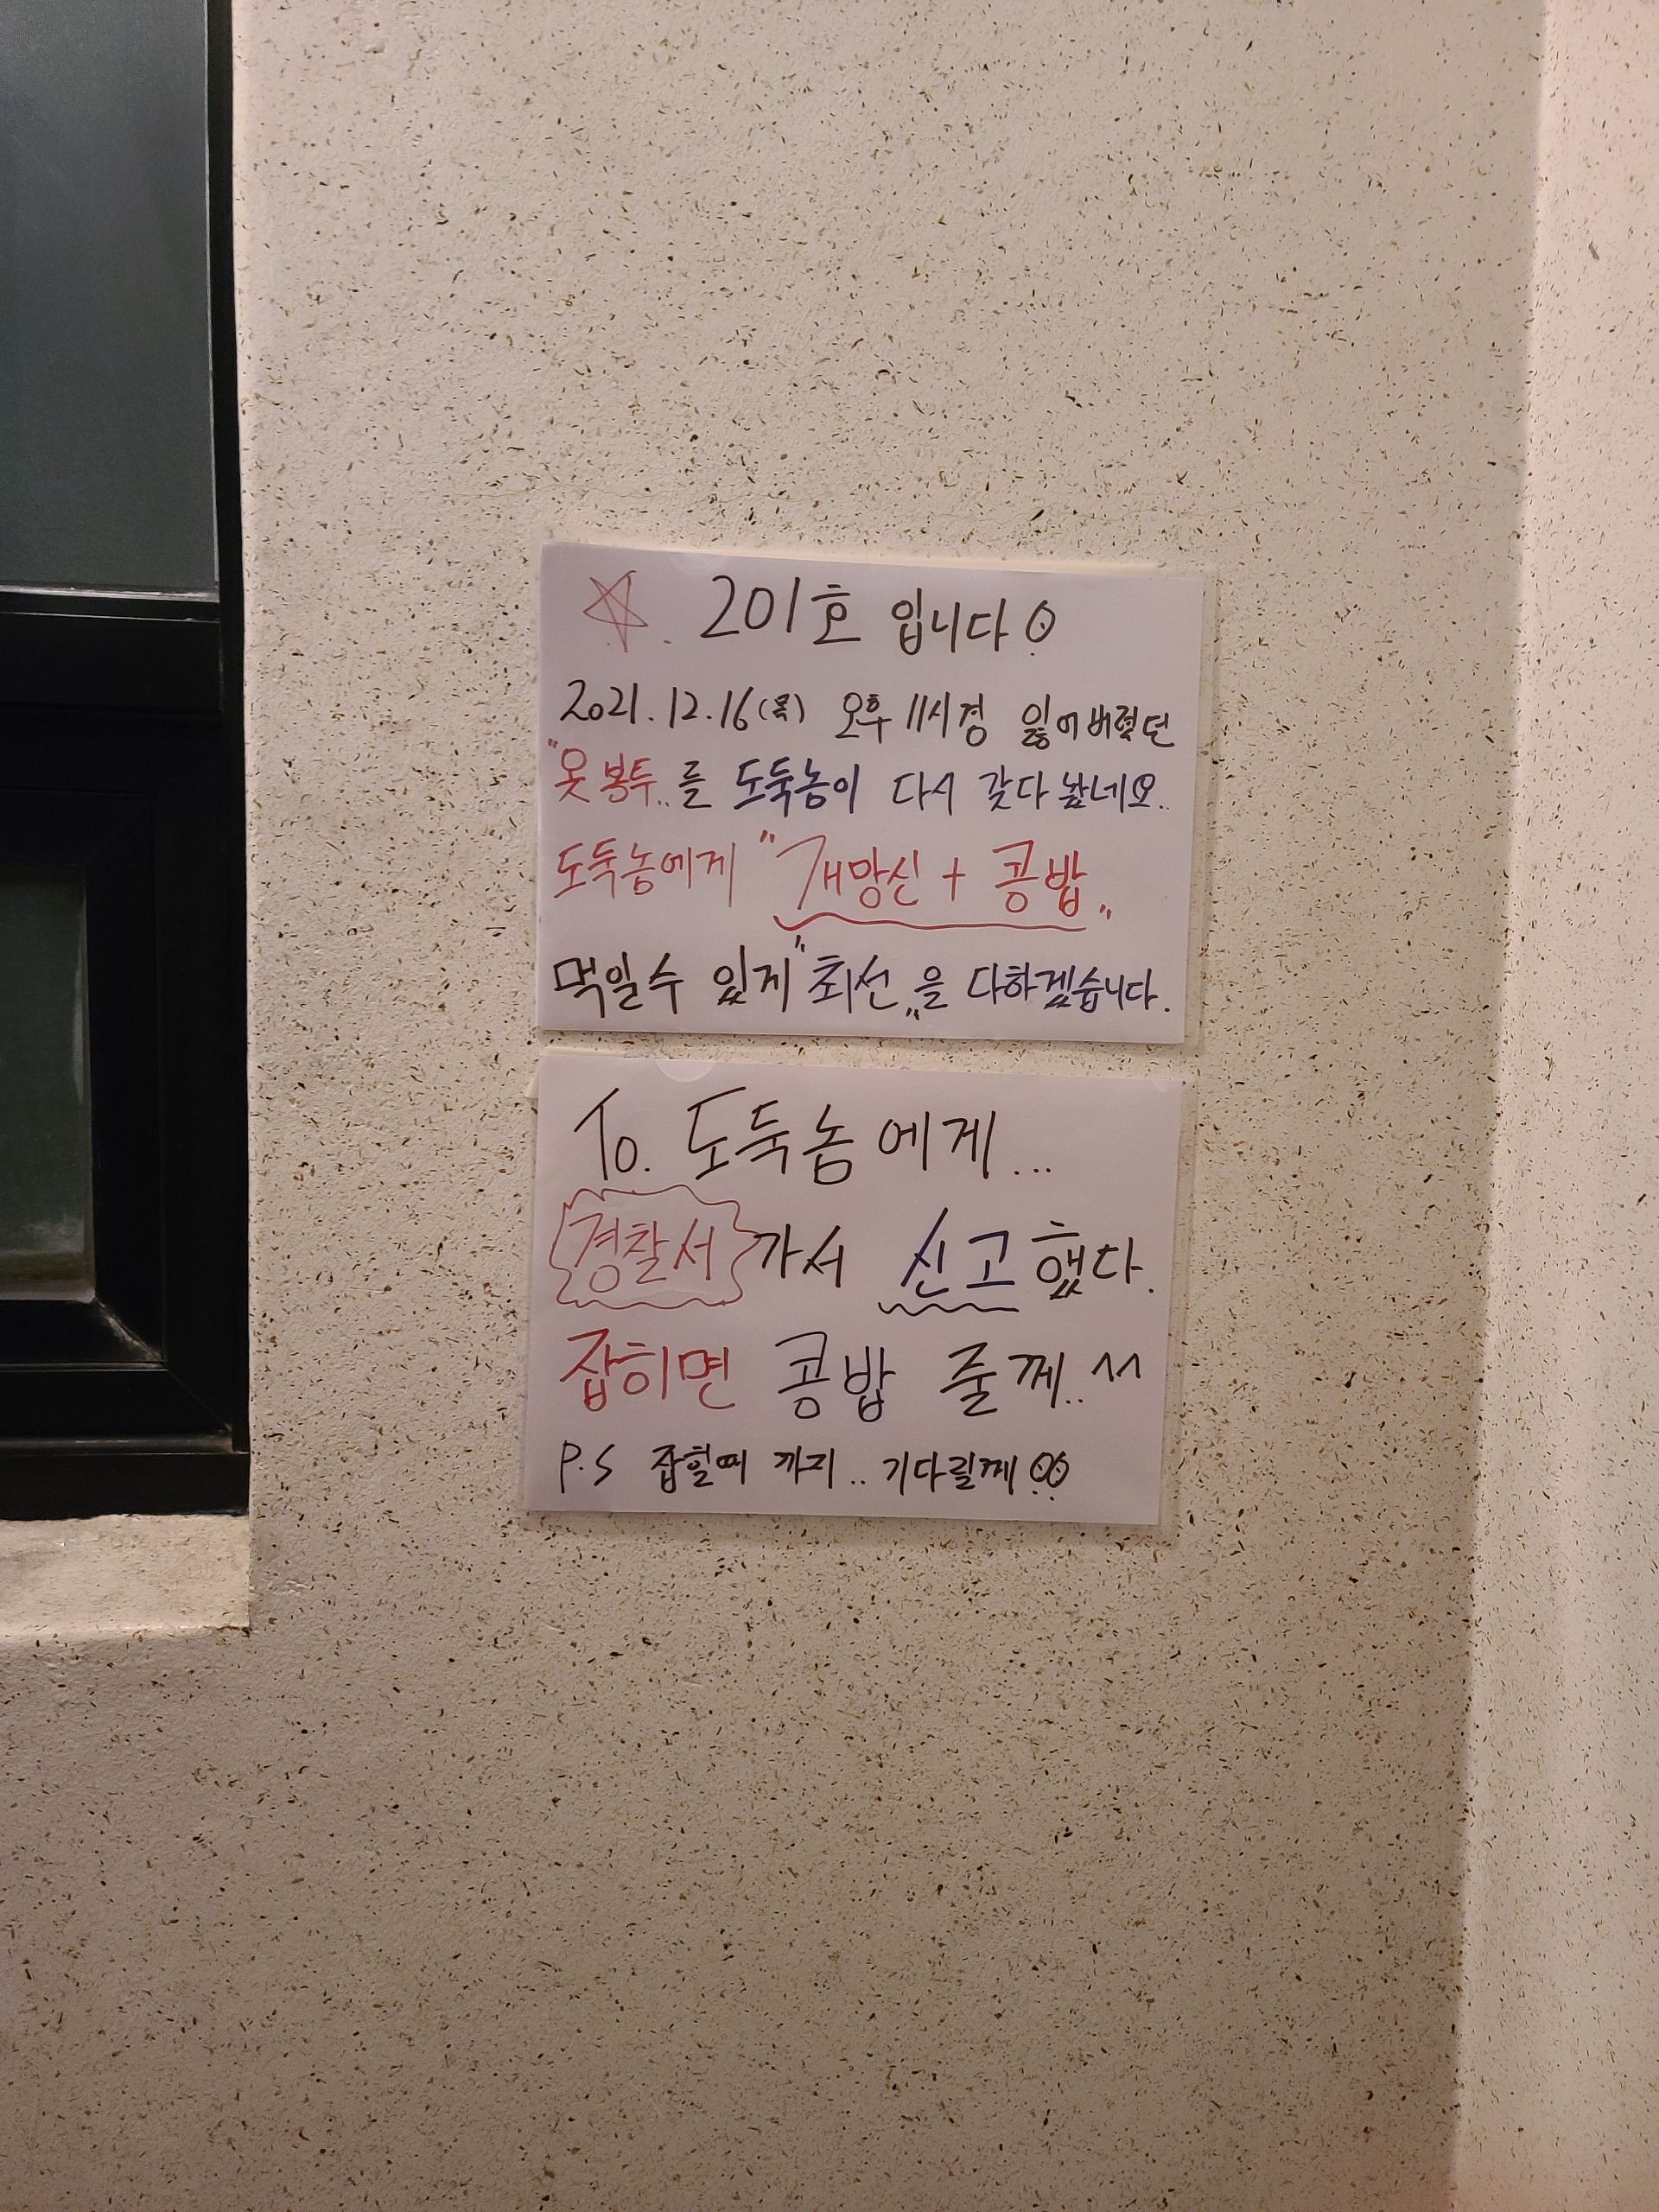 ☆. 201호 입니다!
2021.12.16(목) 오후 11시경 잃어버렸던
"옷 봉투"를 도둑놈이 다시 갖다 놨네요..
도둑놈에게 "개망신 + 콩밥"
먹일수 있게 "최선"을 다하겠습니다.
To. 도둑놈에게...
경찰서가서 신고했다.
잡히면 콩밥 줄께..^^
P.S 잡힐때 까지.. 기다릴께!!